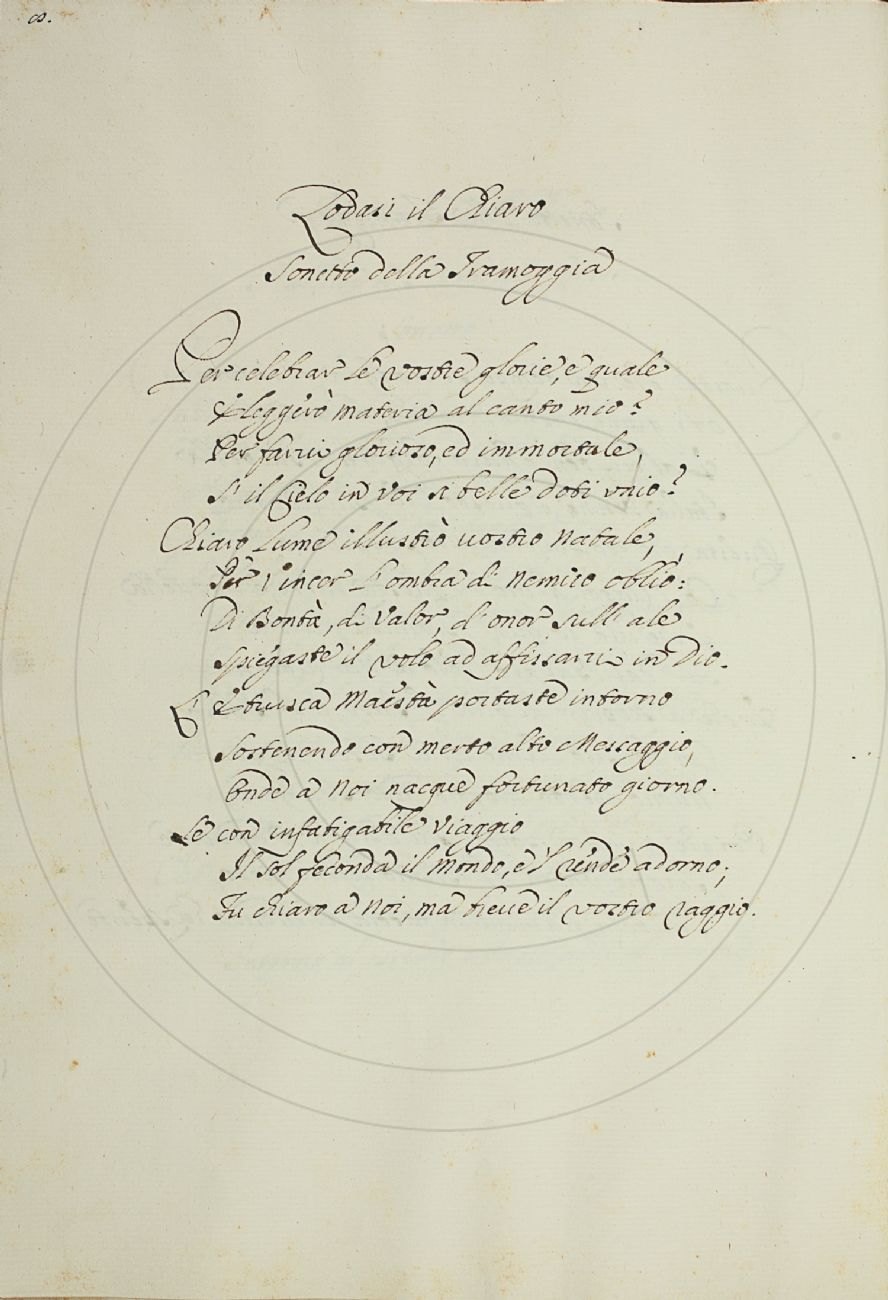 8.
Lodasi il Chiaro
Sonetto della Tramoggia
Per celebrar le vostre glorie, e quale
Eleggerò materia al canto mio?
Per farvi glorioso, ed immortale,
S' il Cielo in voi sì belle doti unio?
Chiaro lume illustrò vostro natale,
Per vincer l'ombra di nemico oblio:
Di Bontà, di Valor, d' onor sull' ale
spiegaste il volo ad affissarvi in Dio.
E Etrusca Maestà portaste intorno
Sostenendo con merto alto Messaggio,
Onde a Noi nacque fortunato giorno.
Se con infatigabile Viaggio
Il Sol feconda il mondo, e 'l rende adorno;
Fu chiaro a Noi, ma breve il vostro raggio.